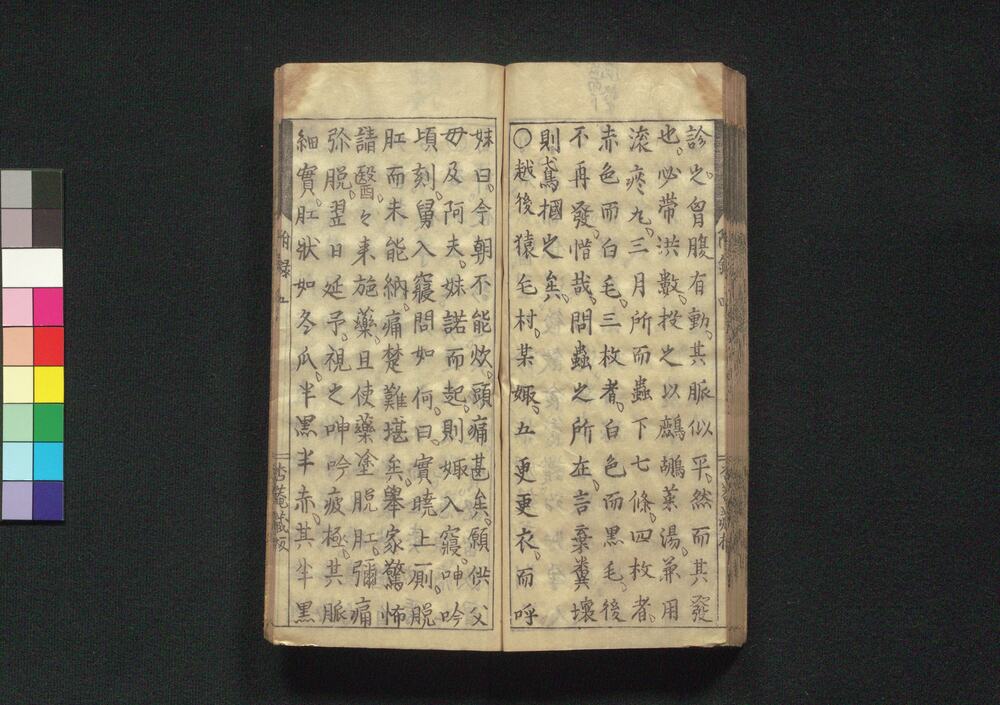 診之胷腹有動其脈似平然而其發
也必带洪數投之以鷓鴣菜湯兼用
滚痰丸三月所而蟲下七條四枚者
赤色而白毛三枚者白色而黒毛後
不再發惜哉問蟲之所在言棄糞壊
則鳶摑之矣
〇越後猿毛村某娵五更更衣而呼
妹曰今朝不能炊頭痛甚矣願供父
毋及阿夫妹諾而起則娵入寢呻吟
頃刻舅入寢問如何曰實曉上厠脱
肛而未能納痛楚難堪矣舉家驚怖
請醫々来施藥且使藥塗脱肛彌痛
弥脱翌日延予視之呻吟疲極其脈
細實肛狀如冬瓜半黒半赤其半黒
附録 五
杏菴藏板